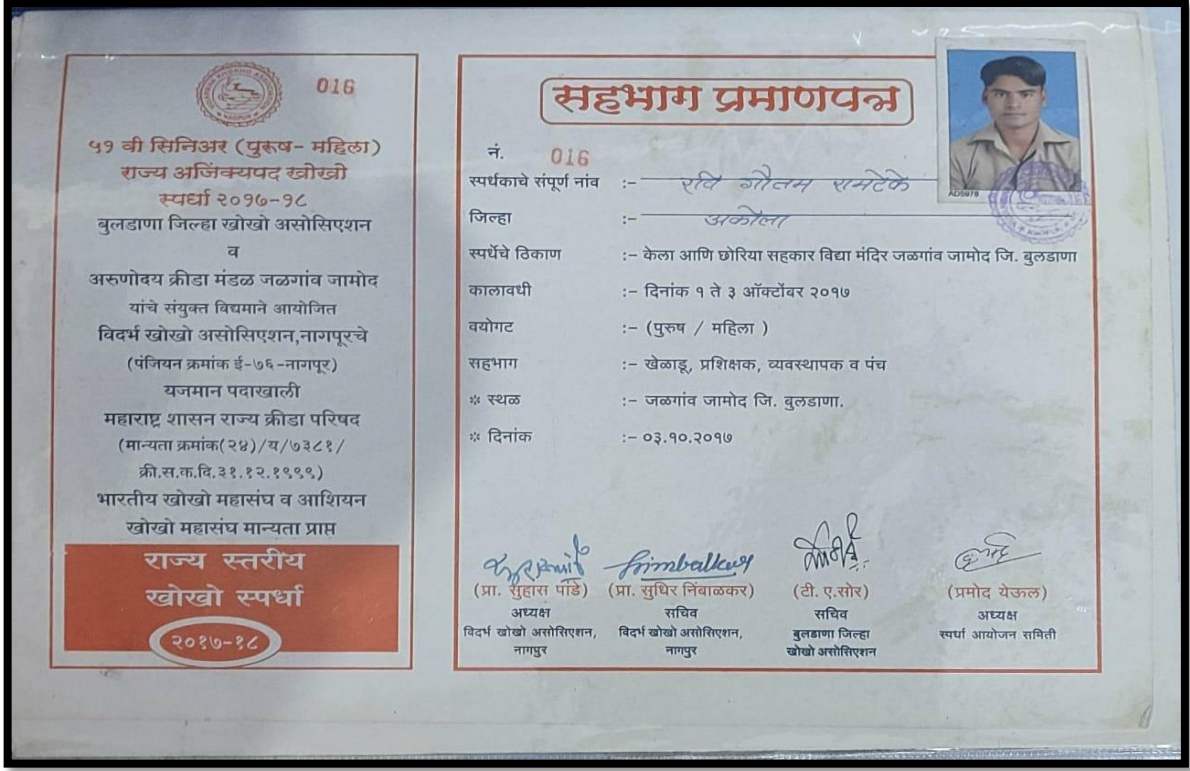 016
५१ वी सिनिअर (पुरूष- महिला)
राज्य अजिंक्यपद खोखो
स्पर्धा २०१७-१८
बुलडाणा जिल्हा खोखो असोसिएशन
व
अरुणोदय क्रीडा मंडळ जळगांव जामोद
यांचे संयुक्त विद्यमाने आयोजित
विदर्भ खोखो असोसिएशन,नागपूरचे
(पंजियन क्रमांक ई-७६-नागपूर)
यजमान पदाखाली
महाराष्ट्र शासन राज्य क्रीडा परिषद
(मान्यता क्रमांक(२४)/य/७३८१/
क्री.स.क.दि.३१.१२.१९९९)
भारतीय खोखो महासंघ व आशियन
खोखो महासंघ मान्यता प्राप्त
राज्य स्तरीय
खोखो स्पर्धा
२०१७-१८
सहभाग प्रमाणपत्र
नं. 016
स्पर्धकाचे संपूर्ण नांव :- रवि गौतम रामटेके
जिल्हा :- अकोला
स्पर्धेचे ठिकाण :- केला आणि छोरिया सहकार विद्या मंदिर जळगांव जामोद जि. बुलडाणा
कालावधी :- दिनांक १ ते ३ ऑक्टोंबर २०१७
वयोगट :- (पुरुष / महिला )
सहभाग :- खेळाडू, प्रशिक्षक, व्यवस्थापक व पंच
* स्थळ :- जळगांव जामोद जि. बुलडाणा.
* दिनांक :- ०३.१०.२०१७
AD5978
(प्रा. सुहास पांडे) (प्रा. सुधिर निंबाळकर) (टी. ए.सोर) (प्रमोद येऊल)
अध्यक्ष सचिव सचिव अध्यक्ष
विदर्भ खोखो असोसिएशन, विदर्भ खोखो असोसिएशन, बुलडाणा जिल्हा स्पर्धा आयोजन समिती
नागपुर नागपुर खोखो असोसिएशन